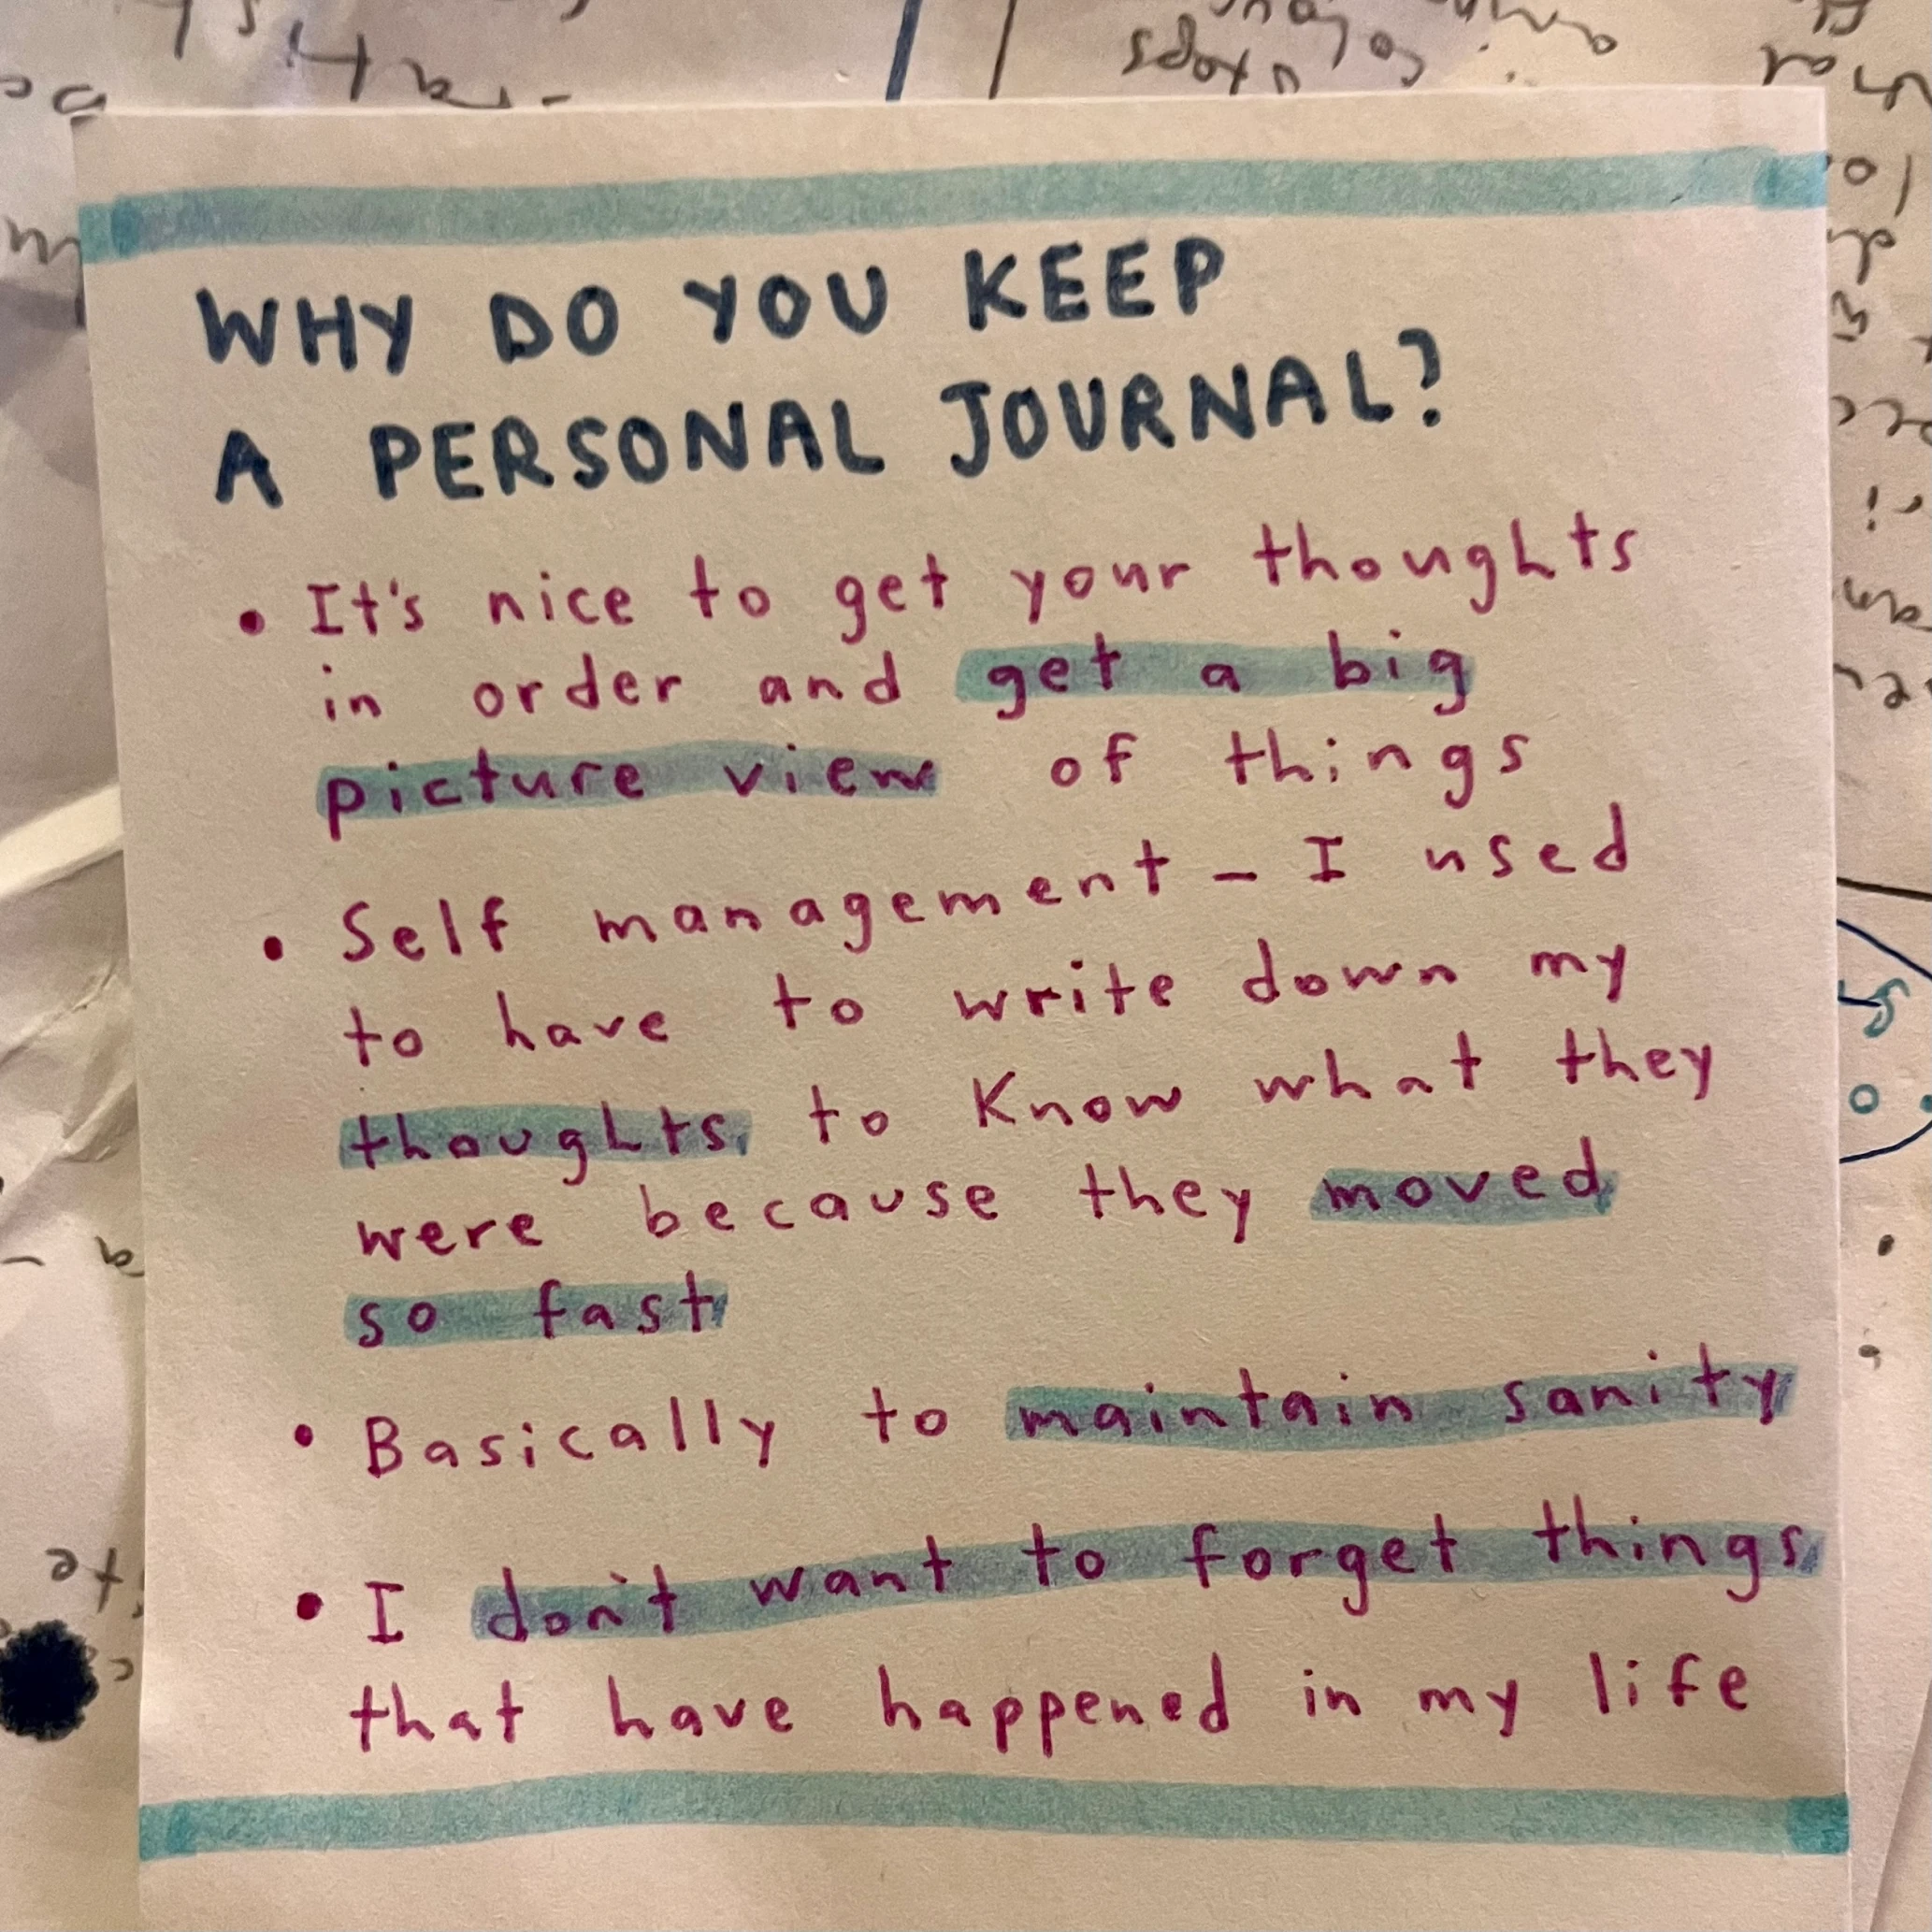 WHY DO YOU KEEP
A PERSONAL JOURNAL?
• It's nice to get your thoughts
in order and get a big
picture view of things
• Self management – I used
to have to write down my
thoughts to know what they
were because they moved
so fast
• Basically to maintain sanity
• I don't want to forget things
that have happened in my life